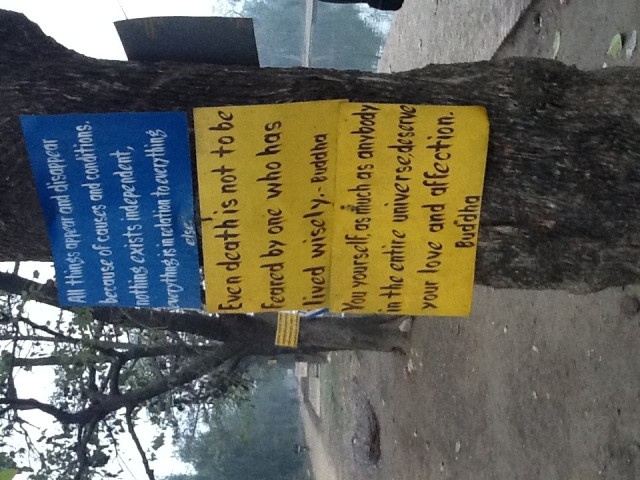 All things appear and disappear
because of causes and conditions.
nothing exists independent,
everything is in relation to everything
else.
Even death is not to be
feared by one who has
lived wisely. - Buddha
You yourself, as much as anybody
in the entire universe, deserve
your love and affection.
Buddha